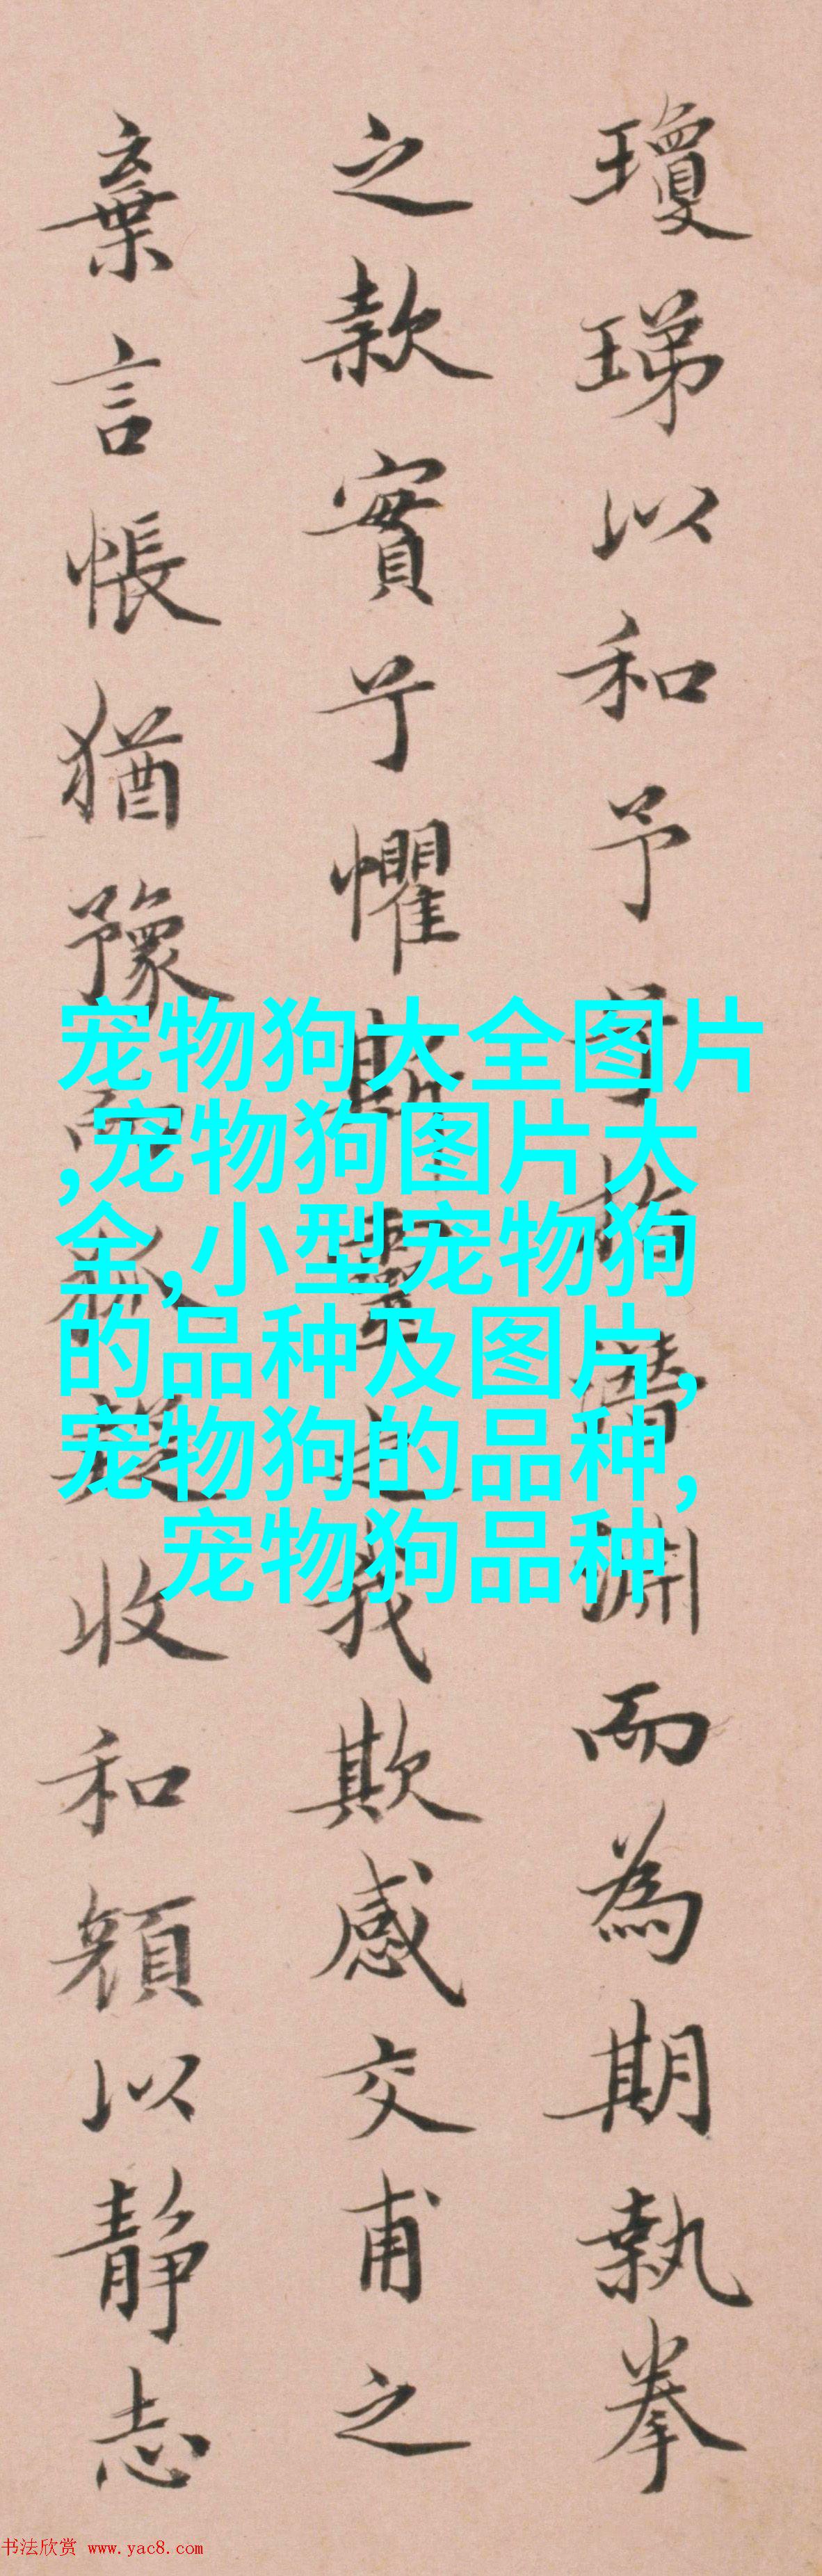 瓊珶以和予兮指潛淵而為期執拳
之款實兮懼斯靈之我欺感交甫之
棄言悵猶豫而狐疑收和顏以靜志
宠物狗大全图片
,宠物狗图片大
全,小型宠物狗
的品种及图片,
宠物狗的品种,
宠物狗品种
书法欣赏 www.yac8.com